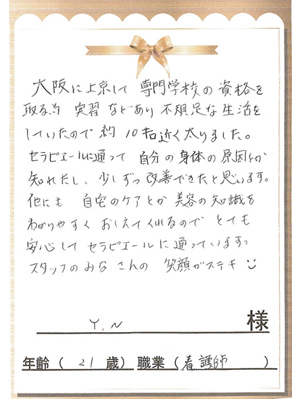 大阪に上京して 専門学校の資格を
取る為 実習などあり 不規則な生活を
していたので 約10キロ近く太りました。
セラピエールに通って 自分の身体の原因とか
知れたし、少しずつ改善できたと思います。
他にも 自宅のケアとか 美容の知識を
わかりやすく おしえてくれるので とても
安心して セラピエールに通っています♪
スタッフのみなさんの 笑顔がステキ
Y.N 様
年齢（ 21 歳）職業（看護師 ）